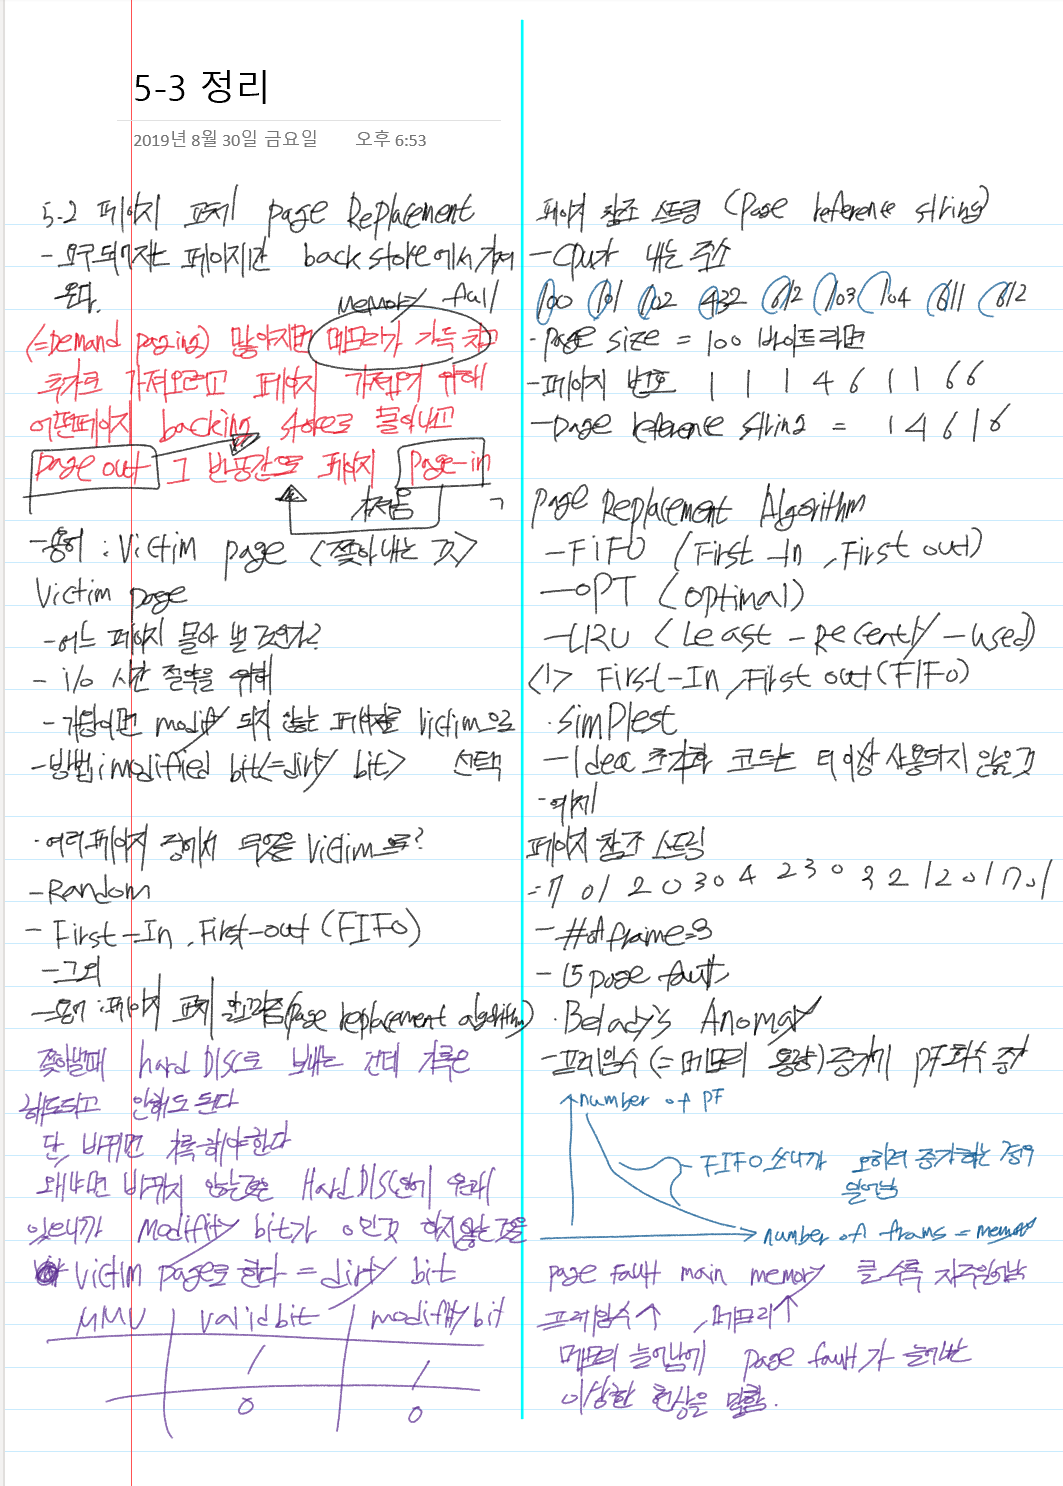 5-3 정리
2019년 8월 30일 금요일 오후 6:53
5-2 페이지 교체 page Replacement
- 요구되어지는 페이지만 back store에서 가져
온다.
memory full
(=Demand paging) 많아지면 메모리가 가득 차고
추가로 가져오려고 페이지 가져오기 위해
어떤페이지 backing store로 몰아내고
page out 그 빈공간으로 페이지 page-in
가져옴
-용어 : Victim page <쫓아내는 것>
Victim page
-어느 페이지 몰아 낼 것인가?
- i/o 시간 절약을 위해
-가능하면 modify 되지 않는 페이지를 victim으로
선택
-방법 : modified bit(=dirty bit>
·여러페이지 중에서 무엇을 Victim으로?
-Random
- First-In, First-out (FIFO)
-그외
-용어 :페이지 교체 알고리즘(page replacement algorithm)
쫓아낼때 hard DISC로 보내는 건데 기록은
해도되고 안해도 된다
단, 바뀌면 기록해야한다
왜냐면 바뀌지 않는것은 Hard DISC안에 원래
있으니까 modifity bit가 0인것 하지않는것을
victim page로 한다 = dirty bit
MMU valid bit modifity bit
1 1
0 0
페이지 참조 스트링 (Page reference string)
-CPU가 내는 주소
100 101 102 432 612 103 104 611 612
·Page size = 100 바이트라면
-페이지 번호 1 1 1 4 6 1 1 6 6
-page reference string = 1 4 6 1 6
Page Replacement Algorithm
-FIFO (First-In, First out)
-OPT (optimal)
-LRU (Least-Recently-used)
<1> First-In, First out (FIFO)
·Simplest
-Idea 초기화 코드는 더이상 사용되지 않을것
-예제
페이지 참조 스트링
=7 0 1 2 0 3 0 4 2 3 0 3 2 1 2 0 1 7 0 1
-#of frame=3
- 15 page fault
·Belady's Anomaly
-프레임수 (=메모리 용량) 증가시 PF회수 증가
number of PF
FIFO 쓰니까 오히려 증가하는 경우
일어남
number of frams = memory
page fault main memory 클수록 자주일어남
프레임수↑, 메모리↑
메모리 늘어남에 page fault가 늘어나는
이상한 현상을 말함.